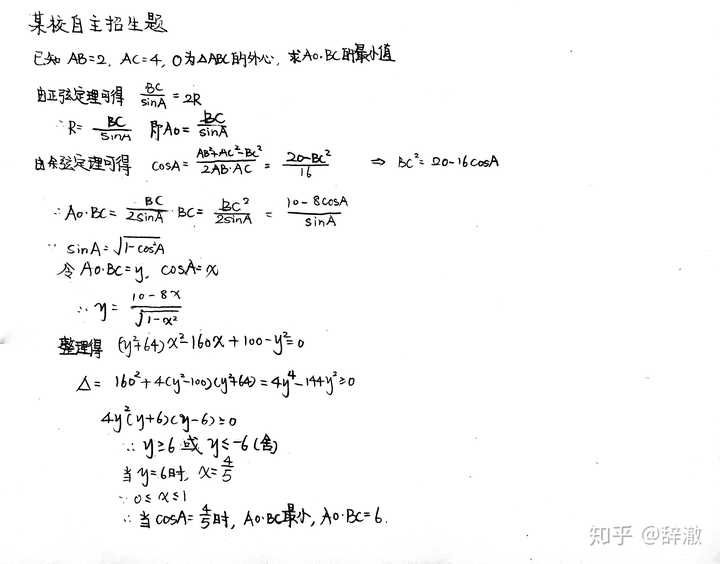 某校自主招生题
已知 AB=2, AC=4, O为△ABC的外心, 求AO·BC的最小值
由正弦定理可得 BC/sinA = 2R
∴R= BC/sinA 即AO= BC/sinA
由余弦定理可得 cosA= (AB²+AC²-BC²)/(2AB·AC) = (20-BC²)/16 ⇒ BC²=20-16cosA
∴AO·BC= BC/2sinA ·BC= BC²/2sinA = (10-8cosA)/sinA
∵ sinA=√(1-cos²A)
令AO·BC=y, cosA=x
∴ y= (10-8x)/√(1-x²)
整理得 (y²+64)x²-160x+100-y²=0
△= 160²+4(y²-100)(y²+64)=4y⁴-144y²≥0
4y²(y+6)(y-6)≥0
∴ y≥6 或 y≤-6(舍)
当y=6时, x=4/5
∵ 0≤x≤1
∴ 当cosA=4/5时, AO·BC最小, AO·BC=6.
知乎 @辞澈